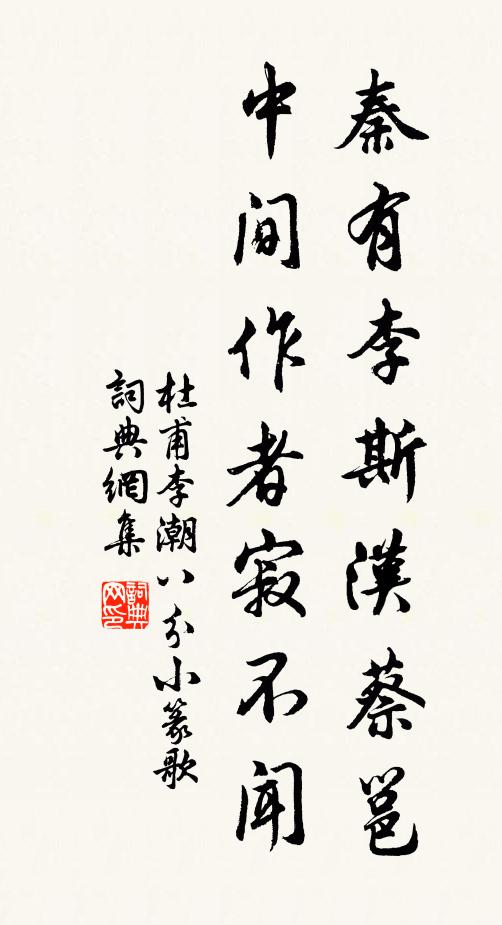 秦有李斯漢蔡邕
中间作者寂不闻
杜甫李潮八分小篆歌
詞典網集
詞典网印